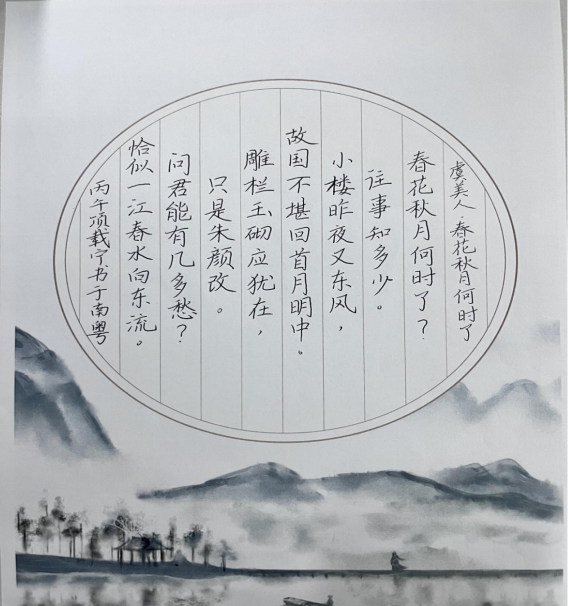 虞美人·春花秋月何时了
春花秋月何时了？
往事知多少。
小楼昨夜又东风，
故国不堪回首月明中。
雕栏玉砌应犹在，
只是朱颜改。
问君能有几多愁？
恰似一江春水向东流。
丙午项载宁书于南粤